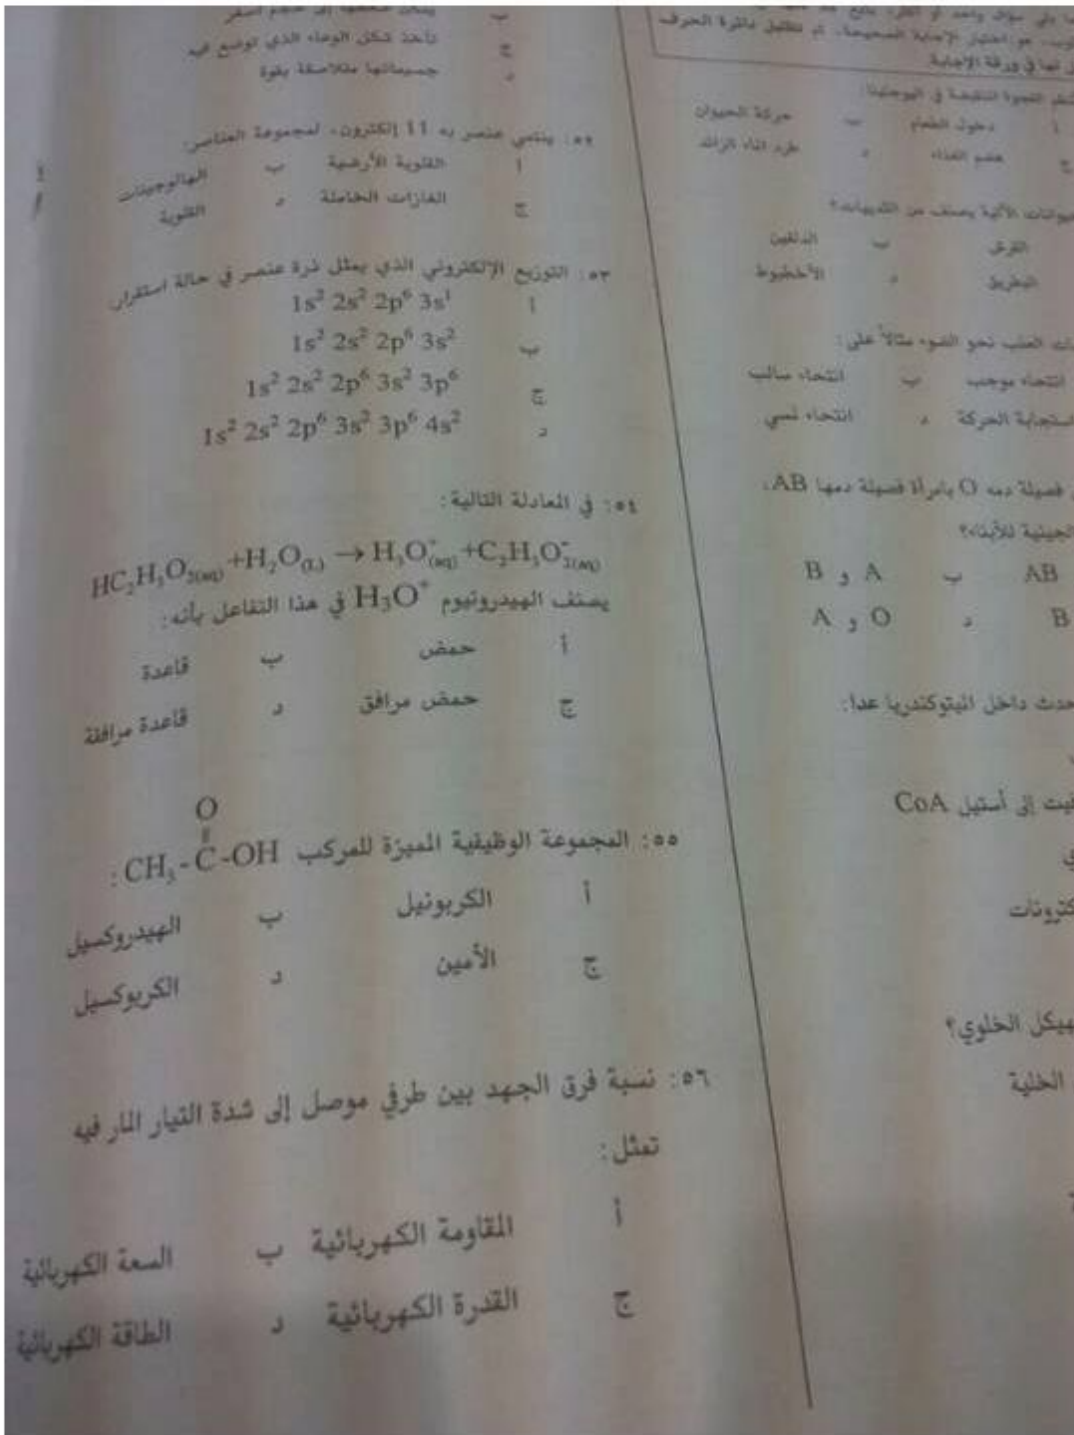 تأخذ شكل الوعاء الذي توضع فيه
ج
جسيماتها متلاصقة بقوة
د
٥٢: ينتمي عنصر به 11 إلكترون، لمجموعة العناصر:
أ القلوية الأرضية ب الهالوجينات
ج الغازات الخاملة د القلوية
٥٣: التوزيع الإلكتروني الذي يمثل ذرة عنصر في حالة استقرار
أ 1s² 2s² 2p⁶ 3s¹
ب 1s² 2s² 2p⁶ 3s²
ج 1s² 2s² 2p⁶ 3s² 3p⁶
د 1s² 2s² 2p⁶ 3s² 3p⁶ 4s²
٥٤: في المعادلة التالية:
HC₂H₃O₂(aq) +H₂O(L) → H₃O⁺(aq) +C₂H₃O⁻₂(aq)
يصنف الهيدرونيوم H₃O⁺ في هذا التفاعل بأنه:
أ حمض ب قاعدة
ج حمض مرافق د قاعدة مرافقة
O
٥٥: المجموعة الوظيفية المميزة للمركب CH₃-C-OH :
أ الكربونيل ب الهيدروكسيل
ج الأمين د الكربوكسيل
٥٦: نسبة فرق الجهد بين طرفي موصل إلى شدة التيار المار فيه
تمثل:
أ المقاومة الكهربائية ب السعة الكهربائية
ج القدرة الكهربائية د الطاقة الكهربائية
هو اختيار الإجابة الصحيحة، ثم تظليل دائرة الحرف
لها في ورقة الإجابة
أ دخول الطعام ب حركة الحيوان
ج هضم الغذاء د طرد الماء الزائد
الآتية يصنف من الثدييات؟
القرش ب الدلفين
البطريق د الأخطبوط
العنب نحو الضوء مثالاً على:
انتحاء موجب ب انتحاء سالب
استجابة الحركة د انتحاء لمسي
فصيلة دمه O بامرأة فصيلة دمها AB،
الجينية للأبناء؟
AB ب A و B
B د O و A
داخل الميتوكندريا عدا:
إلى أستيل CoA
الخلوي؟
الخلية